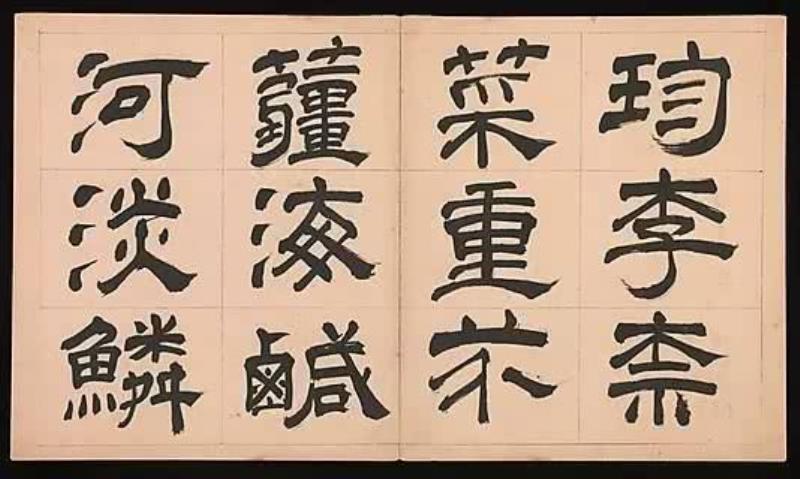 珍李柰
菜重芥
薑海鹹
河淡鱗